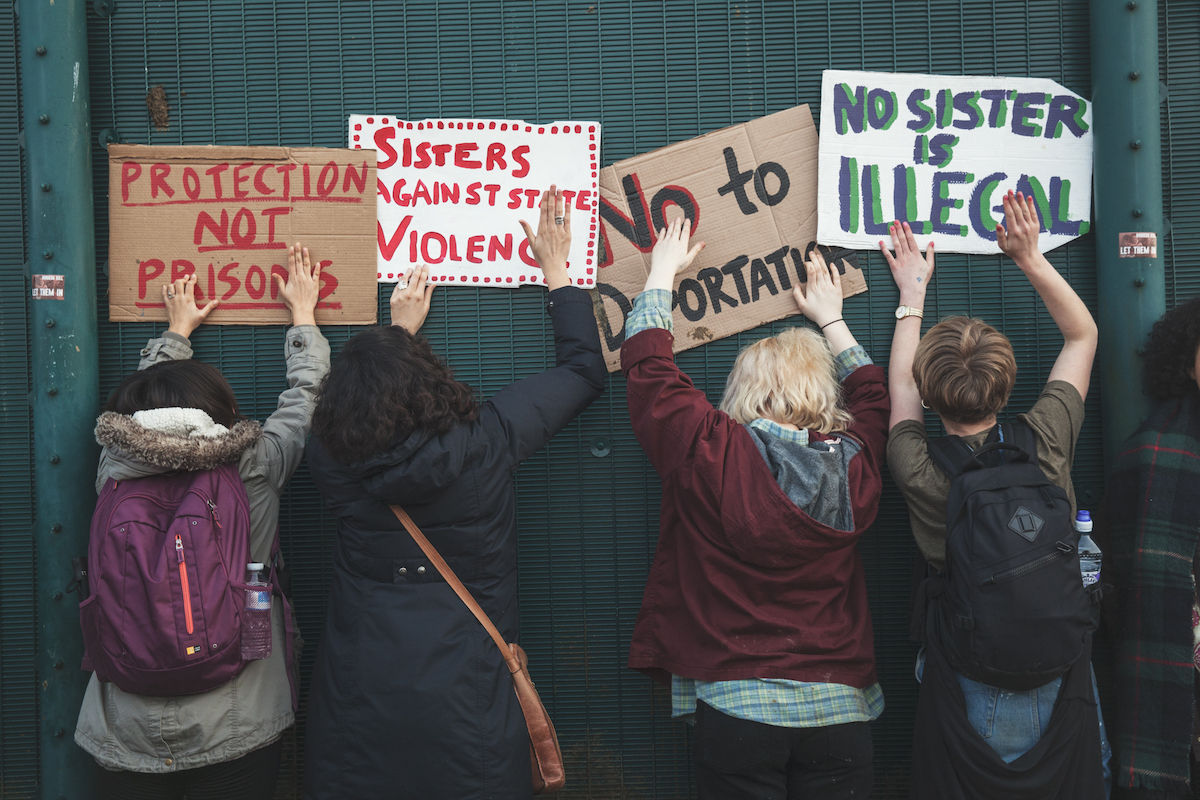 PROTECTION
NOT
PRISONS
SISTERS
AGAINST STATE
VIOLENC
No to
DEPORTATION
NO SISTER
IS
ILLEGAL
LET THEM IN
LET THEM IN